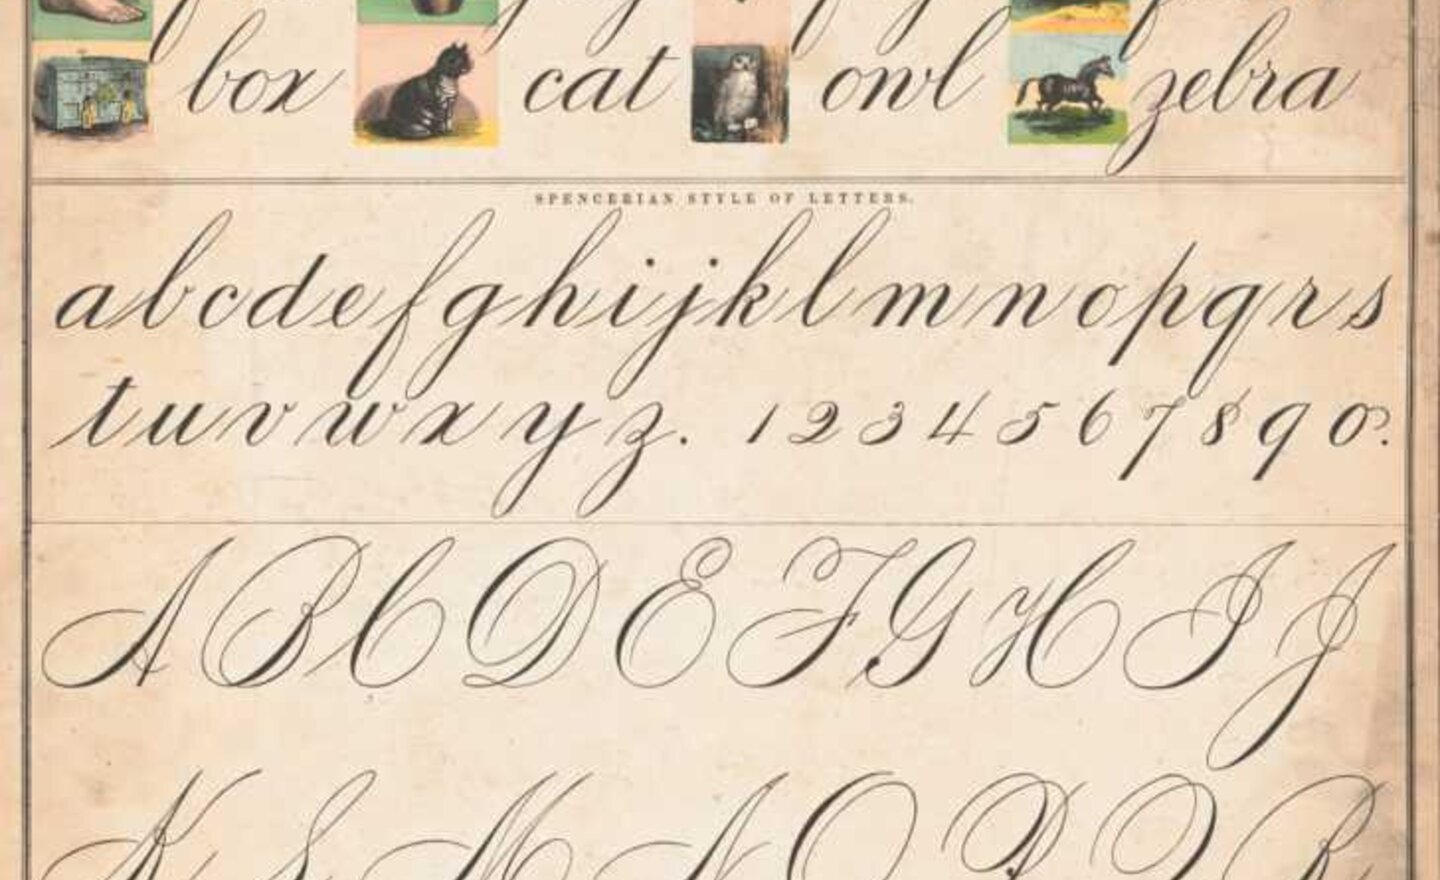 box cat owl zebra
SPENCERIAN STYLE OF LETTERS.
a b c d e f g h i j k l m n o p q r s
t u v w x y z. 1 2 3 4 5 6 7 8 9 0.
A B C D E F G H I J
K L M N O P Q R